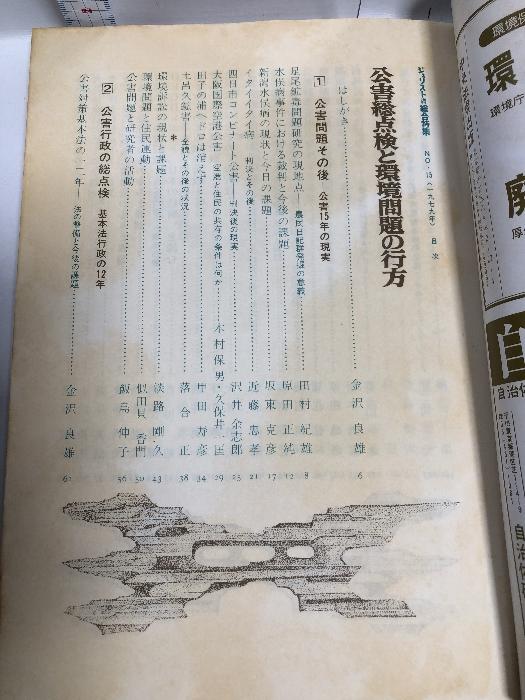 ジュリスト増刊総合特集 NO.15(一九七九年) 目次
公害総点検と環境問題の行方
はしがき 金沢良雄 6
1 公害問題その後 公害15年の現実
足尾鉱毒問題研究の現地点――農民日記群発掘の意義 田村紀雄 8
水俣病事件における裁判と今後の課題 原田正純 12
新潟水俣病の現状と今日の課題 坂東克彦 17
イタイイタイ病――判決とその後 近藤忠孝 21
四日市コンビナート公害――判決後の現実 沢井余志郎 25
大阪国際空港公害――空港と住民の共存の条件は何か 木村保男・久保井一匡 29
田子の浦ヘドロは消えず 甲田寿彦 34
土呂久鉱害――全貌とその後の状況 落合正 38
*
環境訴訟の現状と課題 淡路剛久 43
環境問題と住民運動 似田貝香門 50
公害問題と研究者の活動 飯島伸子 56
2 公害行政の総点検 基本法行政の12年
公害対策基本法の一二年――法の整備と今後の課題 金沢良雄 62
環境
環境庁
廃
自
自治体